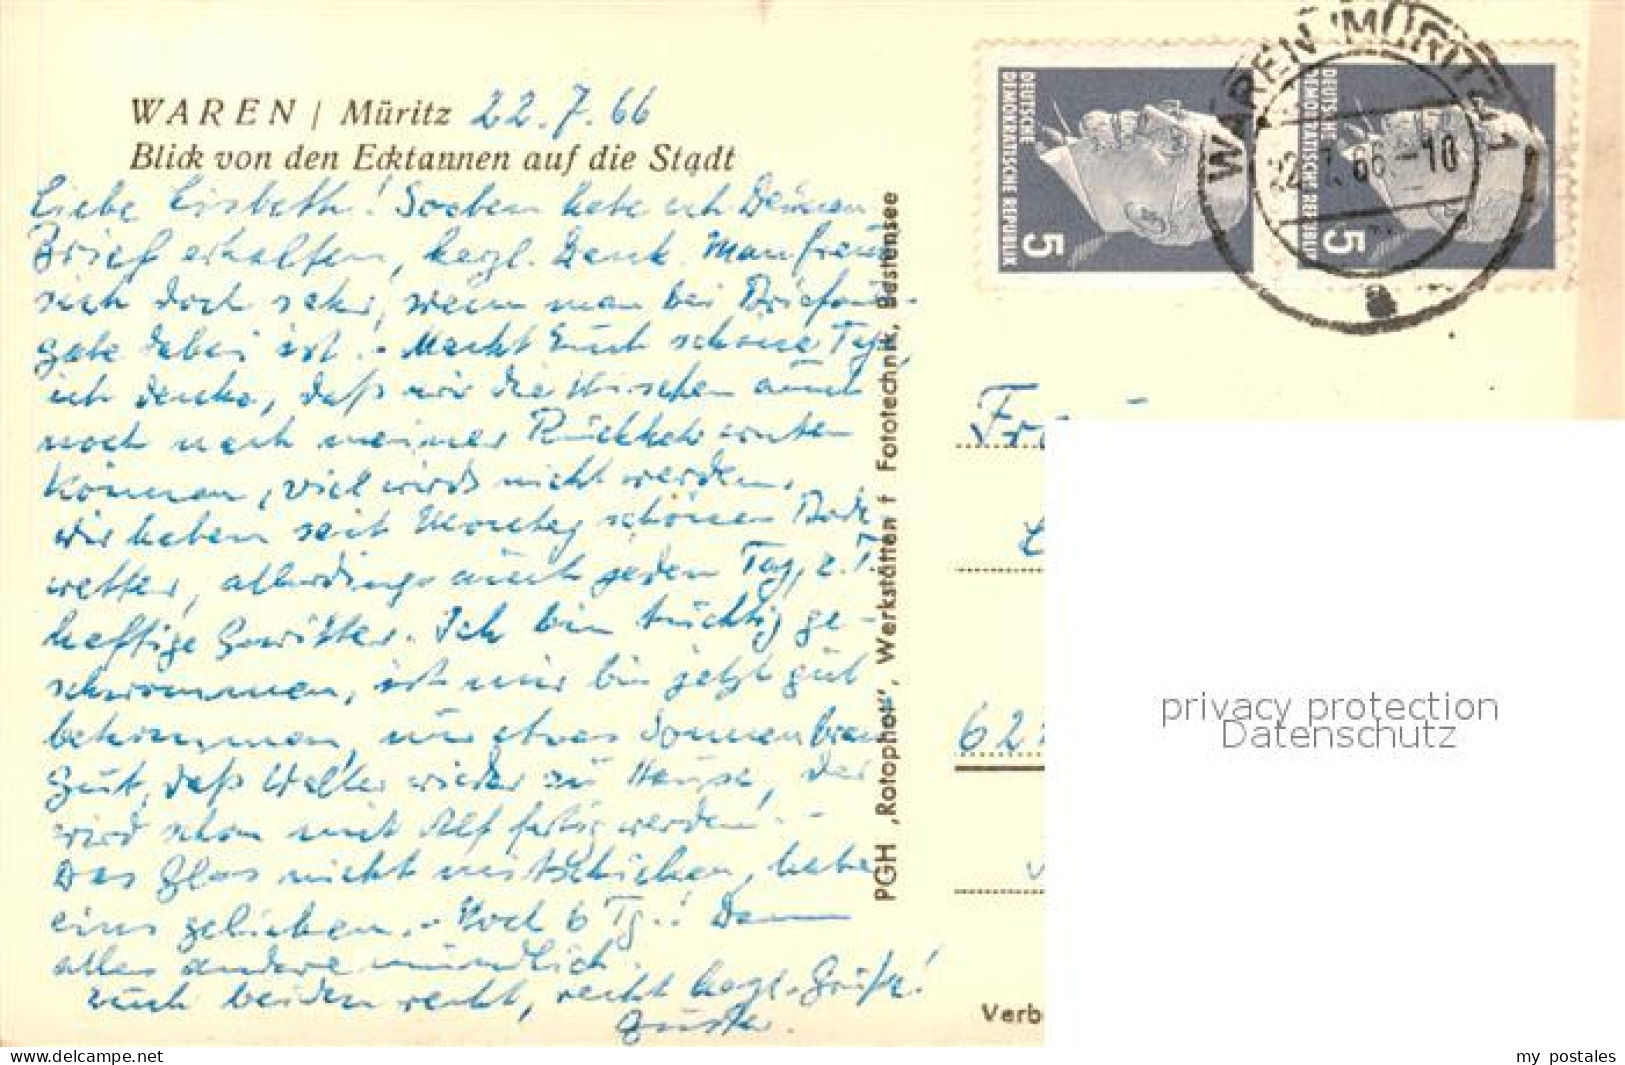 WAREN / Müritz 22.7.66
Blick von den Ecktannen auf die Stadt
Liebe Lisbeth! Soeben habe ich Deinen
Brief erhalten, herzl. Dank. Man freut
sich doch sehr, wenn man bei Briefaus-
gabe dabei ist. - Macht Euch schöne Tage,
ich denke, daß wir die Kirschen auch
noch nach meiner Rückkehr ernten
können, viel wird's nicht werden.
Wir haben seit Montag schönes Bade-
wetter, allerdings auch jeden Tag, z. T.
heftige Gewitter. Ich bin tüchtig ge-
schwommen, ist mir bis jetzt gut
bekommen, nur etwas Sonnenbrand
Gut, daß Walter wieder zu Hause, der
wird schon mit Alf fertig werden. -
Das Glas nicht mitschicken, habe
eins geliehen. - Noch 6 Tg.! Dann
alles andere mündlich.
Euch beiden recht, recht herzl. Grüße!
Gustav.
PGH „Rotophot", Werkstätten f. Fototechnik, Bestensee
DEUTSCHE
DEMOKRATISCHE REPUBLIK
5
DEUTSCHE
DEMOKRATISCHE REPUBLIK
5
WAREN (MÜRITZ) 1
22.7.66.-10
a
Fr
62
privacy protection
Datenschutz
Verb
www.delcampe.net
my postales